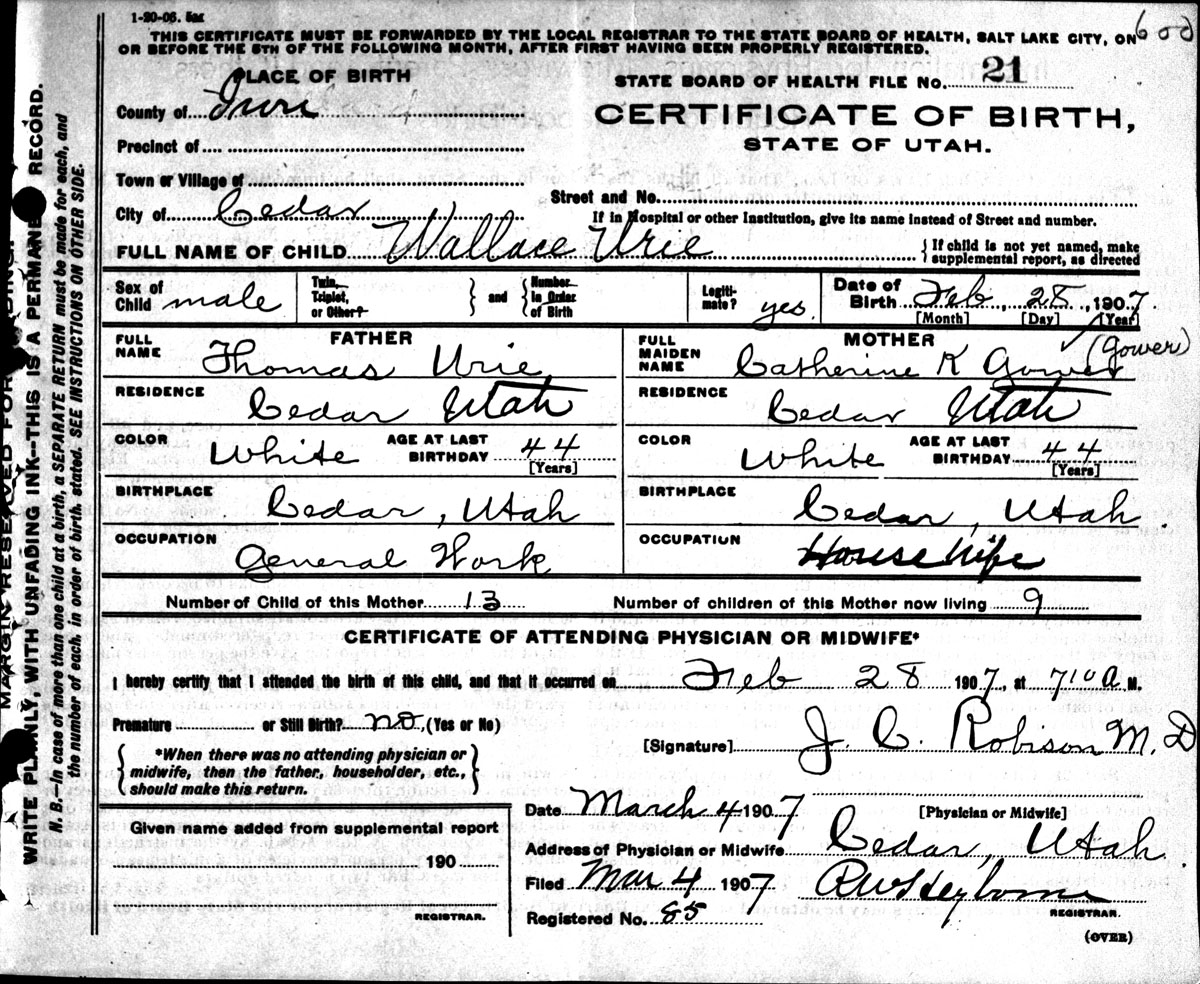 1-20-06. 5m
THIS CERTIFICATE MUST BE FORWARDED BY THE LOCAL REGISTRAR TO THE STATE BOARD OF HEALTH, SALT LAKE CITY, ON
OR BEFORE THE 5TH OF THE FOLLOWING MONTH, AFTER FIRST HAVING BEEN PROPERLY REGISTERED.
PLACE OF BIRTH
STATE BOARD OF HEALTH FILE No. 21
County of Iron
CERTIFICATE OF BIRTH,
STATE OF UTAH.
Precinct of
Town or Village of
Street and No.
City of Cedar
If in Hospital or other Institution, give its name instead of Street and number.
FULL NAME OF CHILD Wallace Urie
{If child is not yet named, make
supplemental report, as directed
Sex of
Child male
Twin,
Triplet,
or Other?
} and {
Number
in Order
of Birth
Legiti-
mate? yes
Date of
Birth Feb 28, 1907.
[Month] [Day] [Year]
FATHER
FULL
NAME Thomas Urie
RESIDENCE
Cedar Utah
COLOR White
AGE AT LAST
BIRTHDAY 44
[Years]
BIRTHPLACE
Cedar, Utah
OCCUPATION
General Work
MOTHER
FULL
MAIDEN
NAME Catherine K Gower
(Gower)
RESIDENCE
Cedar Utah
COLOR White
AGE AT LAST
BIRTHDAY 44
[Years]
BIRTHPLACE
Cedar, Utah.
OCCUPATION
Housewife
Number of Child of this Mother 13
Number of children of this Mother now living 9
CERTIFICATE OF ATTENDING PHYSICIAN OR MIDWIFE*
I hereby certify that I attended the birth of this child, and that it occurred on Feb 28 1907, at 710 A M.
Premature or Still Birth? no, (Yes or No)
{ *When there was no attending physician or
midwife, then the father, householder, etc.,
should make this return. }
[Signature] J. C. Robison M.D
[Physician or Midwife]
Date March 4 1907
Address of Physician or Midwife Cedar, Utah.
Filed Mar 4 1907
REGISTRAR.
Registered No. 85
(OVER)
Given name added from supplemental report
190
REGISTRAR.
WRITE PLAINLY, WITH UNFADING INK--THIS IS A RECORD.
N. B.--In case of more than one child at a birth, a SEPARATE RETURN must be made for each, and
the number of each, in order of birth, stated. SEE INSTRUCTIONS ON OTHER SIDE.